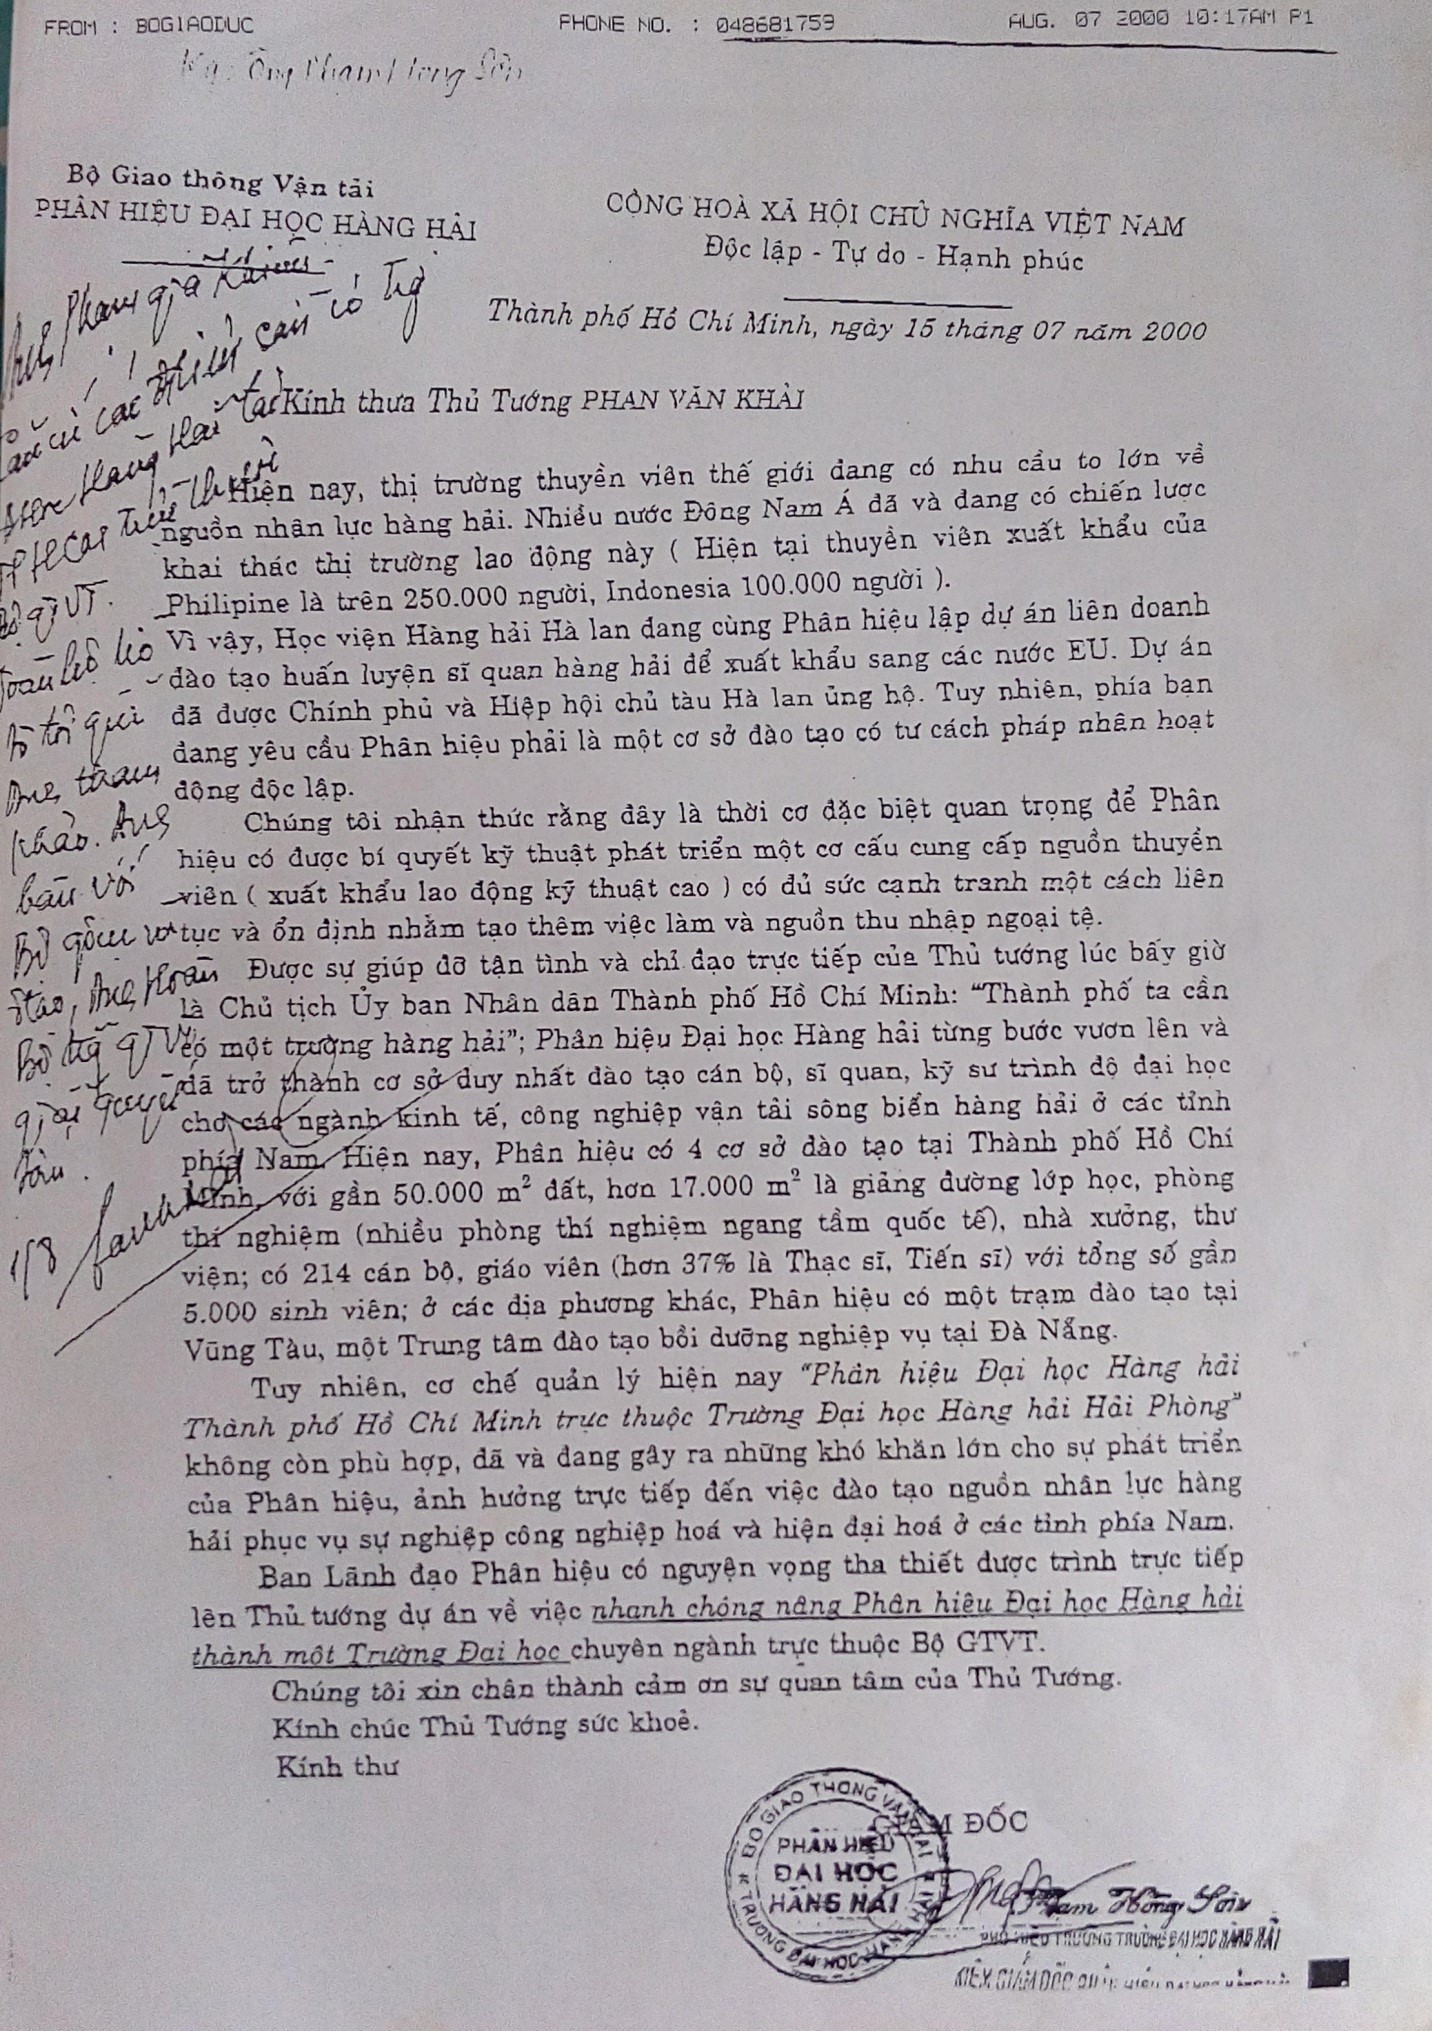 FROM : BOGIAODUC PHONE NO. : 048681759 AUG. 07 2000 10:17AM P1
Ông Phạm Hồng Sơn
Bộ Giao thông Vận tải
PHÂN HIỆU ĐẠI HỌC HÀNG HẢI
CỘNG HOÀ XÃ HỘI CHỦ NGHĨA VIỆT NAM
Độc lập - Tự do - Hạnh phúc
Thành phố Hồ Chí Minh, ngày 15 tháng 07 năm 2000
Anh Phạm Gia Khiêm
căn cứ các điều cần có
Hàng Hải tại
TP HCM
Bộ GTVT.
tôi gửi
Anh tham
khảo. Anh
bàn với
Bộ
đào, Anh Hoàn
Bộ GTVT
giải quyết
1/8
Kính thưa Thủ Tướng PHAN VĂN KHẢI
Hiện nay, thị trường thuyền viên thế giới đang có nhu cầu to lớn về
nguồn nhân lực hàng hải. Nhiều nước Đông Nam Á đã và đang có chiến lược
khai thác thị trường lao động này ( Hiện tại thuyền viên xuất khẩu của
Philipine là trên 250.000 người, Indonesia 100.000 người ).
Vì vậy, Học viện Hàng hải Hà lan đang cùng Phân hiệu lập dự án liên doanh
đào tạo huấn luyện sĩ quan hàng hải để xuất khẩu sang các nước EU. Dự án
đã được Chính phủ và Hiệp hội chủ tàu Hà lan ủng hộ. Tuy nhiên, phía bạn
đang yêu cầu Phân hiệu phải là một cơ sở đào tạo có tư cách pháp nhân hoạt
động độc lập.
Chúng tôi nhận thức rằng đây là thời cơ đặc biệt quan trọng để Phân
hiệu có được bí quyết kỹ thuật phát triển một cơ cấu cung cấp nguồn thuyền
viên ( xuất khẩu lao động kỹ thuật cao ) có đủ sức cạnh tranh một cách liên
tục và ổn định nhằm tạo thêm việc làm và nguồn thu nhập ngoại tệ.
Được sự giúp đỡ tận tình và chỉ đạo trực tiếp của Thủ tướng lúc bấy giờ
là Chủ tịch Ủy ban Nhân dân Thành phố Hồ Chí Minh: “Thành phố ta cần
có một trường hàng hải”; Phân hiệu Đại học Hàng hải từng bước vươn lên và
đã trở thành cơ sở duy nhất đào tạo cán bộ, sĩ quan, kỹ sư trình độ đại học
cho các ngành kinh tế, công nghiệp vận tải sông biển hàng hải ở các tỉnh
phía Nam. Hiện nay, Phân hiệu có 4 cơ sở đào tạo tại Thành phố Hồ Chí
Minh, với gần 50.000 m² đất, hơn 17.000 m² là giảng đường lớp học, phòng
thí nghiệm (nhiều phòng thí nghiệm ngang tầm quốc tế), nhà xưởng, thư
viện; có 214 cán bộ, giáo viên (hơn 37% là Thạc sĩ, Tiến sĩ) với tổng số gần
5.000 sinh viên; ở các địa phương khác, Phân hiệu có một trạm đào tạo tại
Vũng Tàu, một Trung tâm đào tạo bồi dưỡng nghiệp vụ tại Đà Nẵng.
Tuy nhiên, cơ chế quản lý hiện nay “Phân hiệu Đại học Hàng hải
Thành phố Hồ Chí Minh trực thuộc Trường Đại học Hàng hải Hải Phòng”
không còn phù hợp, đã và đang gây ra những khó khăn lớn cho sự phát triển
của Phân hiệu, ảnh hưởng trực tiếp đến việc đào tạo nguồn nhân lực hàng
hải phục vụ sự nghiệp công nghiệp hoá và hiện đại hoá ở các tỉnh phía Nam.
Ban Lãnh đạo Phân hiệu có nguyện vọng tha thiết được trình trực tiếp
lên Thủ tướng dự án về việc nhanh chóng nâng Phân hiệu Đại học Hàng hải
thành một Trường Đại học chuyên ngành trực thuộc Bộ GTVT.
Chúng tôi xin chân thành cảm ơn sự quan tâm của Thủ Tướng.
Kính chúc Thủ Tướng sức khoẻ.
Kính thư
GIÁM ĐỐC
BỘ GIAO THÔNG VẬN TẢI
PHÂN HIỆU
ĐẠI HỌC
HÀNG HẢI
TRƯỜNG ĐẠI HỌC HÀNG HẢI
Phạm Hồng Sơn
PHÓ HIỆU TRƯỞNG TRƯỜNG ĐẠI HỌC HÀNG HẢI
KIÊM GIÁM ĐỐC PHÂN HIỆU ĐẠI HỌC HÀNG HẢI